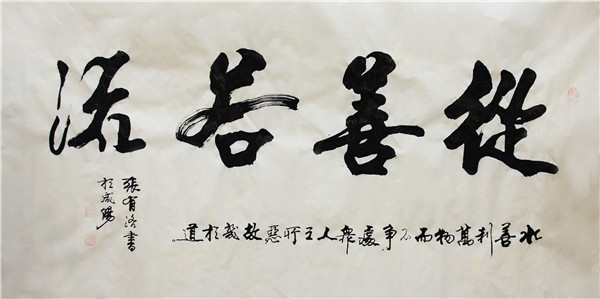 從善若流
水善利萬物而不争處衆人之所惡故幾於道。
張有洛書
於咸陽